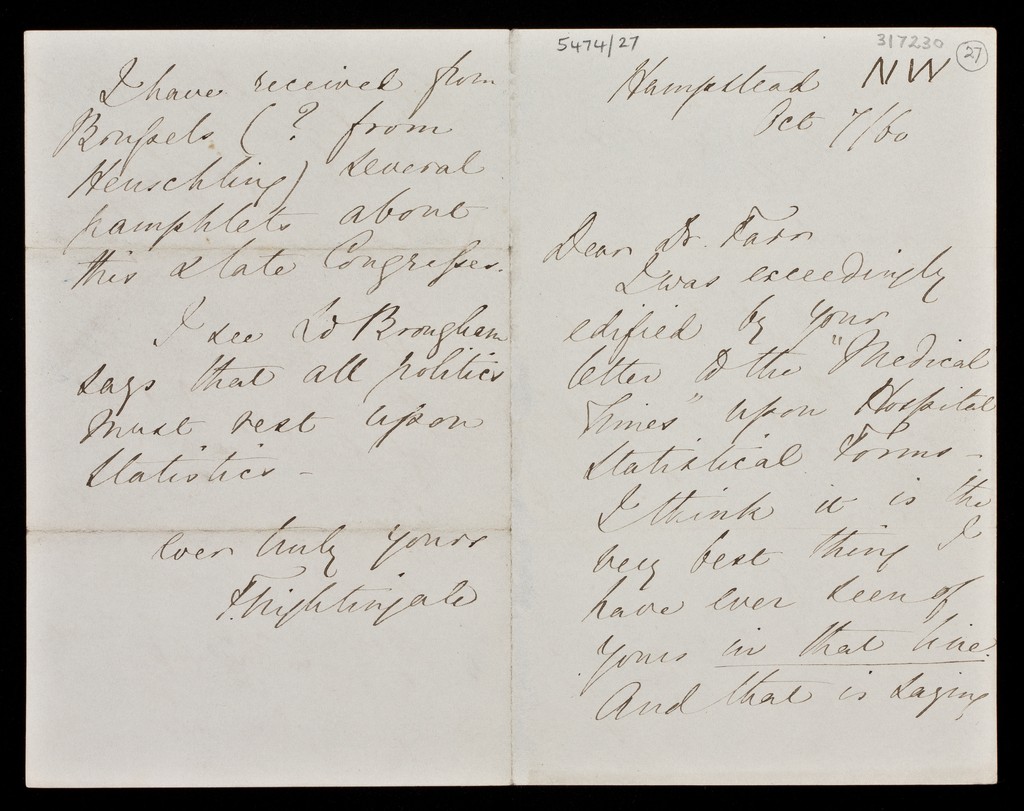 5474/27
317230
27
Hampstead NW
Oct 7/60
Dear Dr. Farr
I was exceedingly
edified by your
letter to the "Medical
Times" upon Hospital
Statistical Forms -
I think it is the
very best thing I
have ever seen of
yours in that line.
And that is saying
I have received from
Brussels (? from
Heuschling) several
pamphlets about
this & late Congresses.
I see Ld Brougham
says that all politics
must rest upon
Statistics -
ever truly yours
F. Nightingale